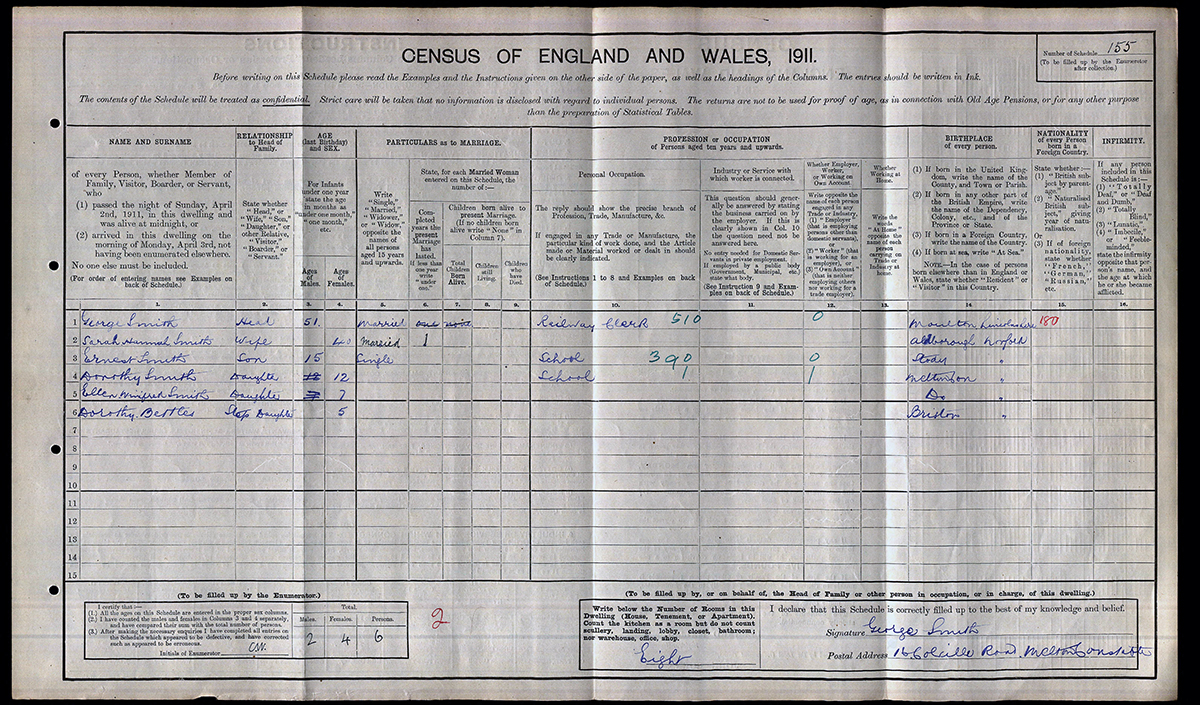 CENSUS OF ENGLAND AND WALES, 1911.
Number of Schedule 155
(To be filled up by the Enumerator
after collection.)
Before writing on this Schedule please read the Examples and the Instructions given on the other side of the paper, as well as the headings of the Columns. The entries should be written in Ink.
The contents of the Schedule will be treated as confidential. Strict care will be taken that no information is disclosed with regard to individual persons. The returns are not to be used for proof of age, as in connection with Old Age Pensions, or for any other purpose
than the preparation of Statistical Tables.
NAME AND SURNAME
of every Person, whether Member of
Family, Visitor, Boarder, or Servant,
who
(1) passed the night of Sunday, April
2nd, 1911, in this dwelling and
was alive at midnight, or
(2) arrived in this dwelling on the
morning of Monday, April 3rd, not
having been enumerated elsewhere.
No one else must be included.
(For order of entering names see Examples on
back of Schedule.)
RELATIONSHIP
to Head of
Family.
State whether
"Head," or
"Wife," "Son,"
"Daughter," or
other Relative,
"Visitor,"
"Boarder," or
"Servant."
AGE
(last Birthday)
and SEX.
For Infants
under one year
state the age
in months as
"under one month,"
"one month,"
etc.
Ages
of
Males.
Ages
of
Females.
PARTICULARS as to MARRIAGE.
Write
"Single,"
"Married,"
"Widower,"
or "Widow,"
opposite the
names of
all persons
aged 15 years
and upwards.
State, for each Married Woman
entered on this Schedule, the
number of:—
Completed
years the
present
Marriage
has
lasted.
If less than
one year
write
"under
one."
Children born alive to
present Marriage.
(If no children born
alive write "None" in
Column 7).
Total
Children
Born
Alive.
Children
still
Living.
Children
who
have
Died.
PROFESSION or OCCUPATION
of Persons aged ten years and upwards.
Personal Occupation.
The reply should show the precise branch of
Profession, Trade, Manufacture, &c.
If engaged in any Trade or Manufacture, the
particular kind of work done, and the Article
made or Material worked or dealt in should
be clearly indicated.
(See Instructions 1 to 8 and Examples on back
of Schedule.)
Industry or Service with
which worker is connected.
This question should gener-
ally be answered by stating
the business carried on by
the employer. If this is
clearly shown in Col. 10
the question need not be
answered here.
No entry needed for Domestic Ser-
vants in private employment.
If employed by a public body
(Government, Municipal, etc.)
state what body.
(See Instruction 9 and Exam-
ples on back of Schedule.)
Whether Employer,
Worker,
or Working on
Own Account.
Write opposite the
name of each person
engaged in any
Trade or Industry,
(1) "Employer"
(that is employing
persons other than
domestic servants),
or
(2) "Worker" (that
is working for an
employer), or
(3) "Own Account"
(that is neither
employing others
nor working for a
trade employer).
Whether
Working at
Home.
Write the
words
"At Home"
opposite the
name of each
person
carrying on
Trade or
Industry at
home.
BIRTHPLACE
of every person.
(1) If born in the United King-
dom, write the name of the
County, and Town or Parish.
(2) If born in any other part of
the British Empire, write
the name of the Dependency,
Colony, etc., and of the
Province or State.
(3) If born in a Foreign Country,
write the name of the Country.
(4) If born at sea, write "At Sea."
NOTE.—In the case of persons
born elsewhere than in England or
Wales, state whether "Resident" or
"Visitor" in this Country.
NATIONALITY
of every Person
born in a
Foreign Country.
State whether:—
(1) "British sub-
ject by parent-
age."
(2) "Naturalised
British sub-
ject," giving
year of natu-
ralisation.
Or
(3) If of foreign
nationality,
state whether
"French,"
"German,"
"Russian,"
etc.
INFIRMITY.
If any person
included in this
Schedule is:—
(1) "Totally
Deaf," or "Deaf
and Dumb,"
(2) "Totally
Blind,"
(3) "Lunatic,"
(4) "Imbecile,"
or "Feeble-
minded,"
state the infirmity
opposite that per-
son's name, and
the age at which
he or she became
afflicted.
1. 2. 3. 4. 5. 6. 7. 8. 9. 10. 11. 12. 13. 14. 15. 16.
1 George Smith Head 51. Married one none Railway Clerk 510 0 Moulton Lincolnshire 180
2 Sarah Hannah Smith Wife 40 Married 1 Aldborough Norfolk
3 Ernest Smith Son 15 Single School 390 0 Stody "
4 Dorothy Smith Daughter 12 12 School 1 1 "
5 Ellen Winifred Smith Daughter 7 7 Do "
6 Dorothy Bettles Step Daughter 5 Briston "
7
8
9
10
11
12
13
14
15
(To be filled up by the Enumerator.)
I certify that:—
(1.) All the ages on this Schedule are entered in the proper sex columns.
(2.) I have counted the males and females in Columns 3 and 4 separately,
and have compared their sum with the total number of persons.
(3.) After making the necessary enquiries I have completed all entries on
the Schedule which appeared to be defective, and have corrected
such as appeared to be erroneous.
Initials of Enumerator
Total.
Males. Females. Persons.
2 4 6
2
(To be filled up by, or on behalf of, the Head of Family or other person in occupation, or in charge, of this dwelling.)
Write below the Number of Rooms in this
Dwelling (House, Tenement, or Apartment).
Count the kitchen as a room but do not count
scullery, landing, lobby, closet, bathroom;
nor warehouse, office, shop.
Eight
I declare that this Schedule is correctly filled up to the best of my knowledge and belief.
Signature George Smith
Postal Address 16 Colville Road. Melton Constable